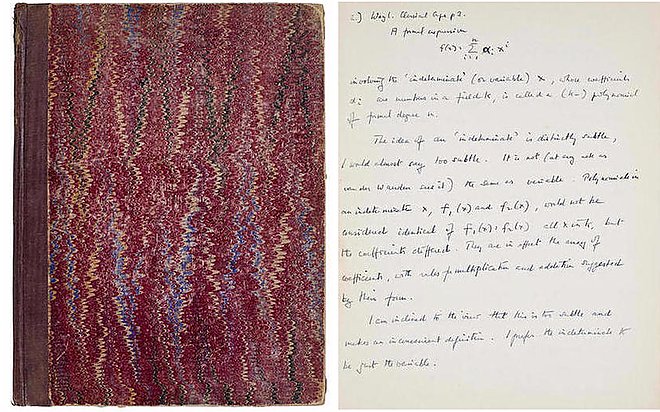 Weyl. Classical Groups p 2.
A formal expression
f(x) = Σ αᵢ xⁱ
involving the 'indeterminate' (or variable) x, whose coefficients
αᵢ are numbers in a field k, is called a (k-) polynomial
of formal degree n.
The idea of an 'indeterminate' is distinctly subtle,
I would almost say too subtle. It is not (at any rate as
van der Waerden sees it) the same as variable. Polynomials in
an indeterminate x, f₁(x) and f₂(x), would not be
considered identical if f₁(x) = f₂(x) all x in k, but
the coefficients differed. They are in effect the array of
coefficients, with rules of multiplication and addition suggested
by their form.
I am inclined to the view that this is too subtle and
makes an inconvenient definition. I prefer the indeterminate to
be just the variable.